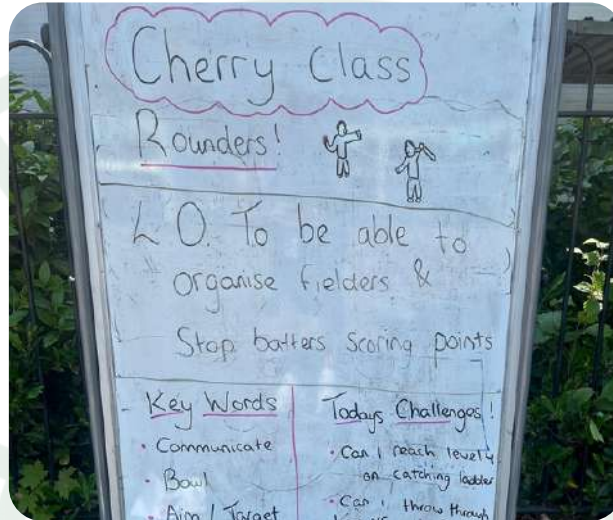 Cherry Class
Rounders!
L O. To be able to
organise fielders &
Stop batters scoring points
Key Words
• Communicate
• Bowl
• Aim / Target
Todays Challenges!
• Can I reach level 4
on catching ladder
• Can I throw through